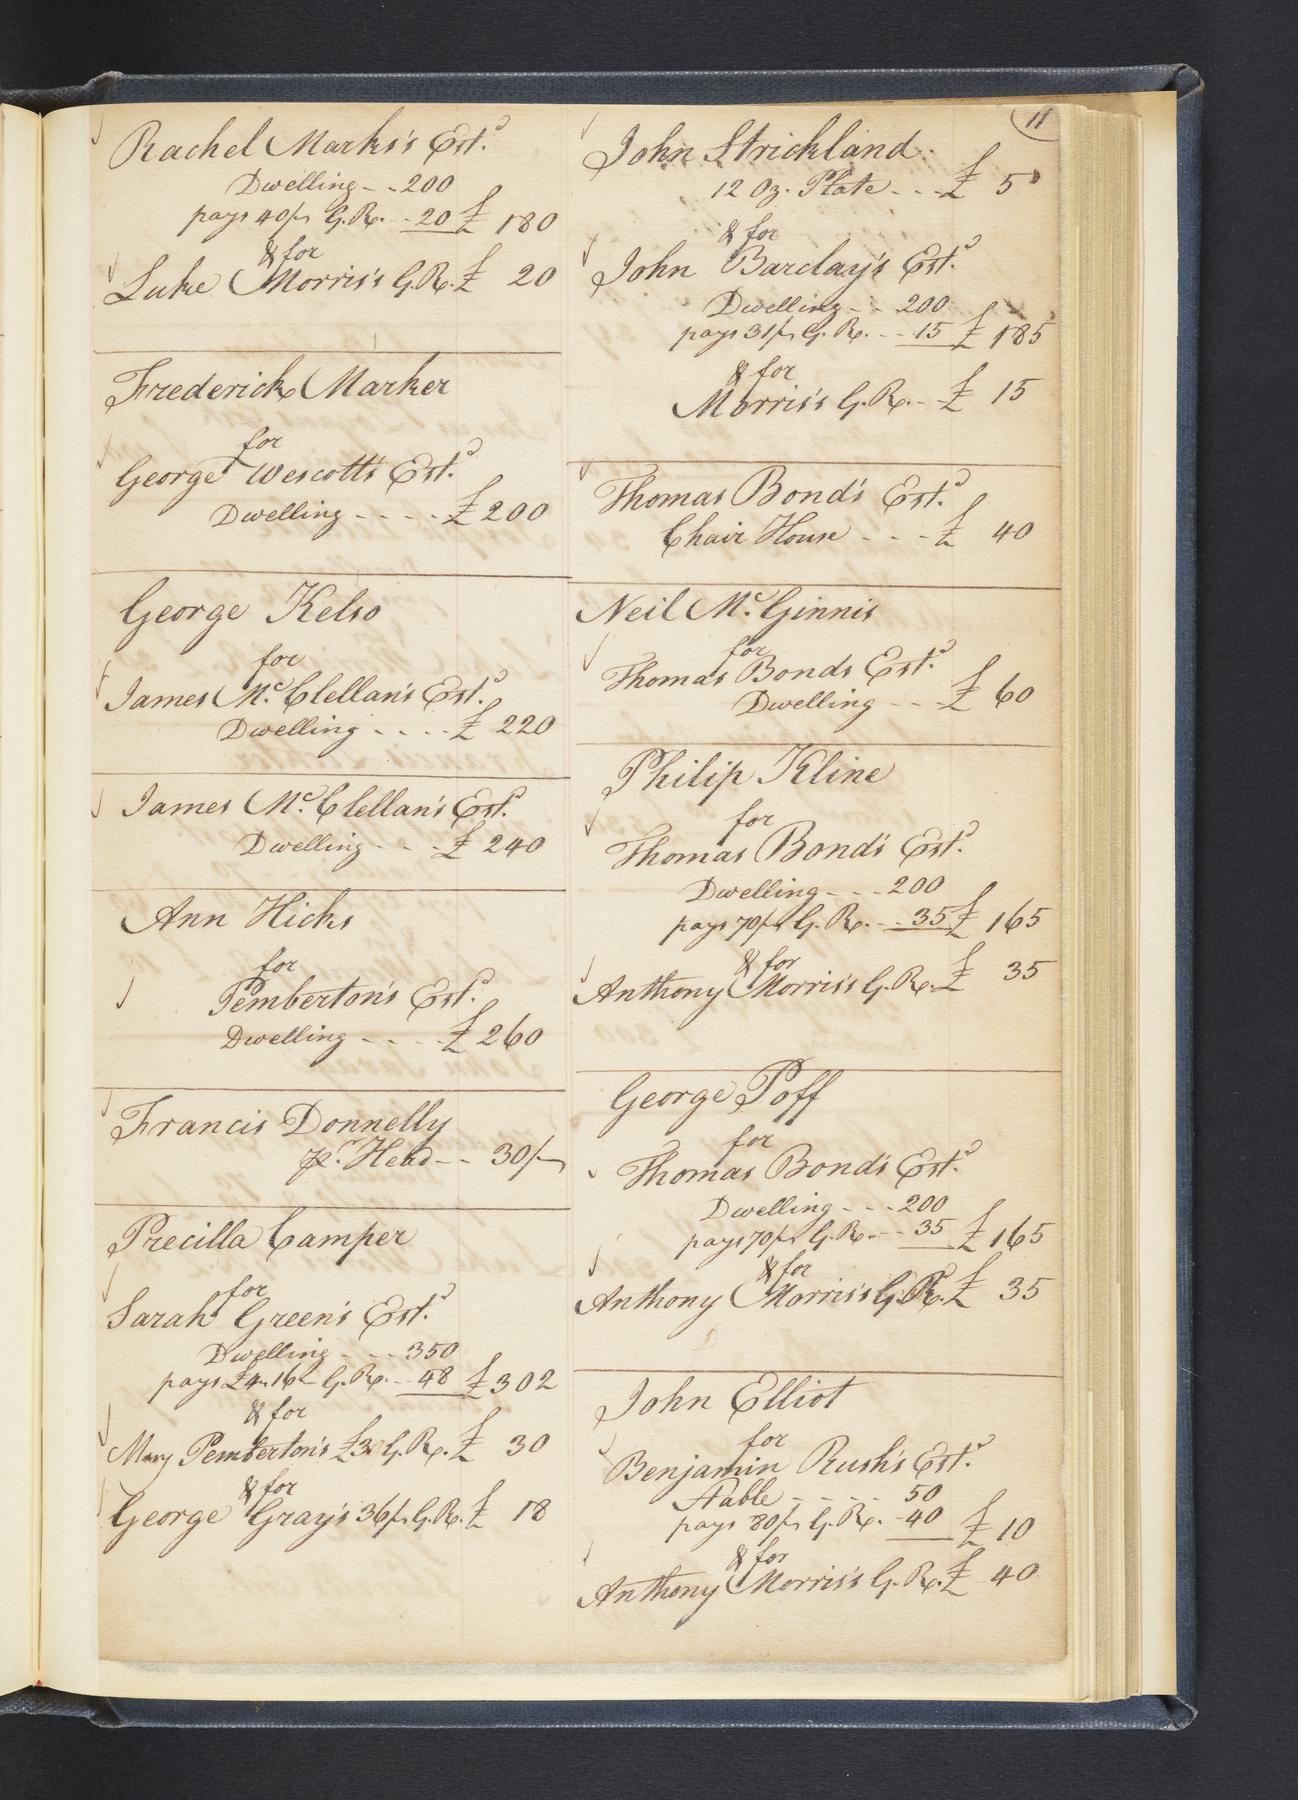 11
Rachel Marks's Est.d
Dwelling - - 200
pays 40/ps G. R. - - 20 £ 180
& for
Luke Morris's G. R. £ 20
Frederick Marker
for
George Wescott's Est.d
Dwelling - - - - £ 200
George Kelso
for
James Mc. Clellan's Est.d
Dwelling - - - - £ 220
James Mc. Clellan's Est.d
Dwelling - - - £ 240
Ann Hicks
for
Pemberton's Est.d
Dwelling - - - - £ 260
Francis Donnelly
pr. Head - - 30/
Precilla Camper
for
Sarah Green's Est.d
Dwelling - - - 350
pays £4.. 16 G. R. - - 48 £ 302
& for
Mary Pemberton's £3 G. R. £ 30
& for
George Gray's 36/ps G. R. £ 18
John Strickland
12 Oz. Plate - - - £ 5
& for
John Barclay's Est.d
Dwelling - - 200
pays 31/ps G. R. - - 15 £ 185
& for
Morris's G. R. - - £ 15
Thomas Bond's Est.d
Chair House - - - £ 40
Neil Mc. Ginnis
for
Thomas Bonds Est.d
Dwelling - - - £ 60
Philip Kline
for
Thomas Bond's Est.d
Dwelling - - - 200
pays 70/ps G. R. - - 35 £ 165
& for
Anthony Morris's G. R. £ 35
George Poff
for
Thomas Bond's Est.d
Dwelling - - - 200
pays 70/ps G. R. - - 35 £ 165
& for
Anthony Morris's G. R. £ 35
John Elliot
for
Benjamin Rush's Est.d
Stable - - - - 50
pays 80/ps G. R. - 40 £ 10
& for
Anthony Morris's G. R. £ 40